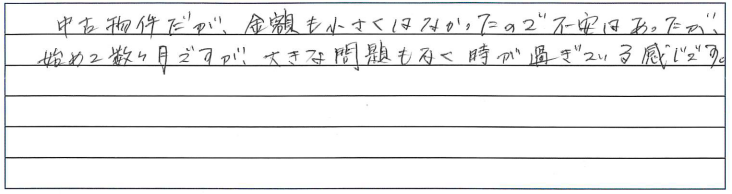 中古物件だが、金額も小さくはなかったので不安はあったが、
始めて数ヶ月ですが、大きな問題もなく時が過ぎている感じです。